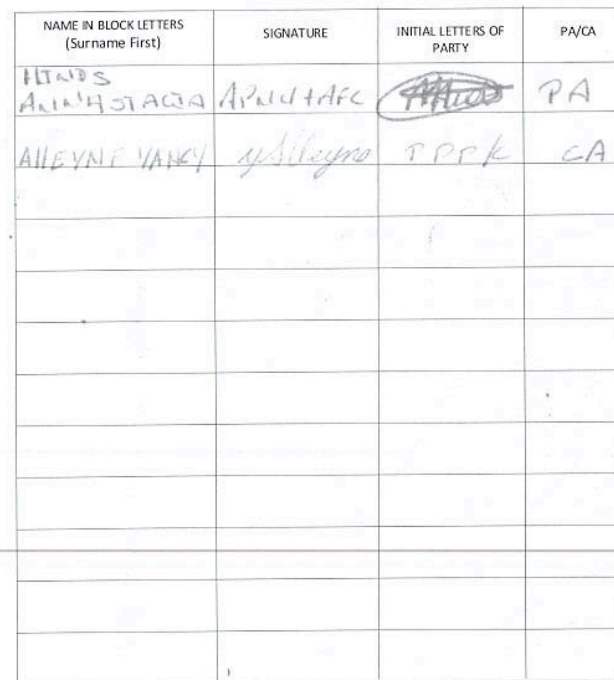 NAME IN BLOCK LETTERS
(Surname First)
SIGNATURE
INITIAL LETTERS OF
PARTY
PA/CA
HINDS
ANNASTACIA APNU+AFC PA
ALLEYNE YANCY yAlleyne PPP/C CA